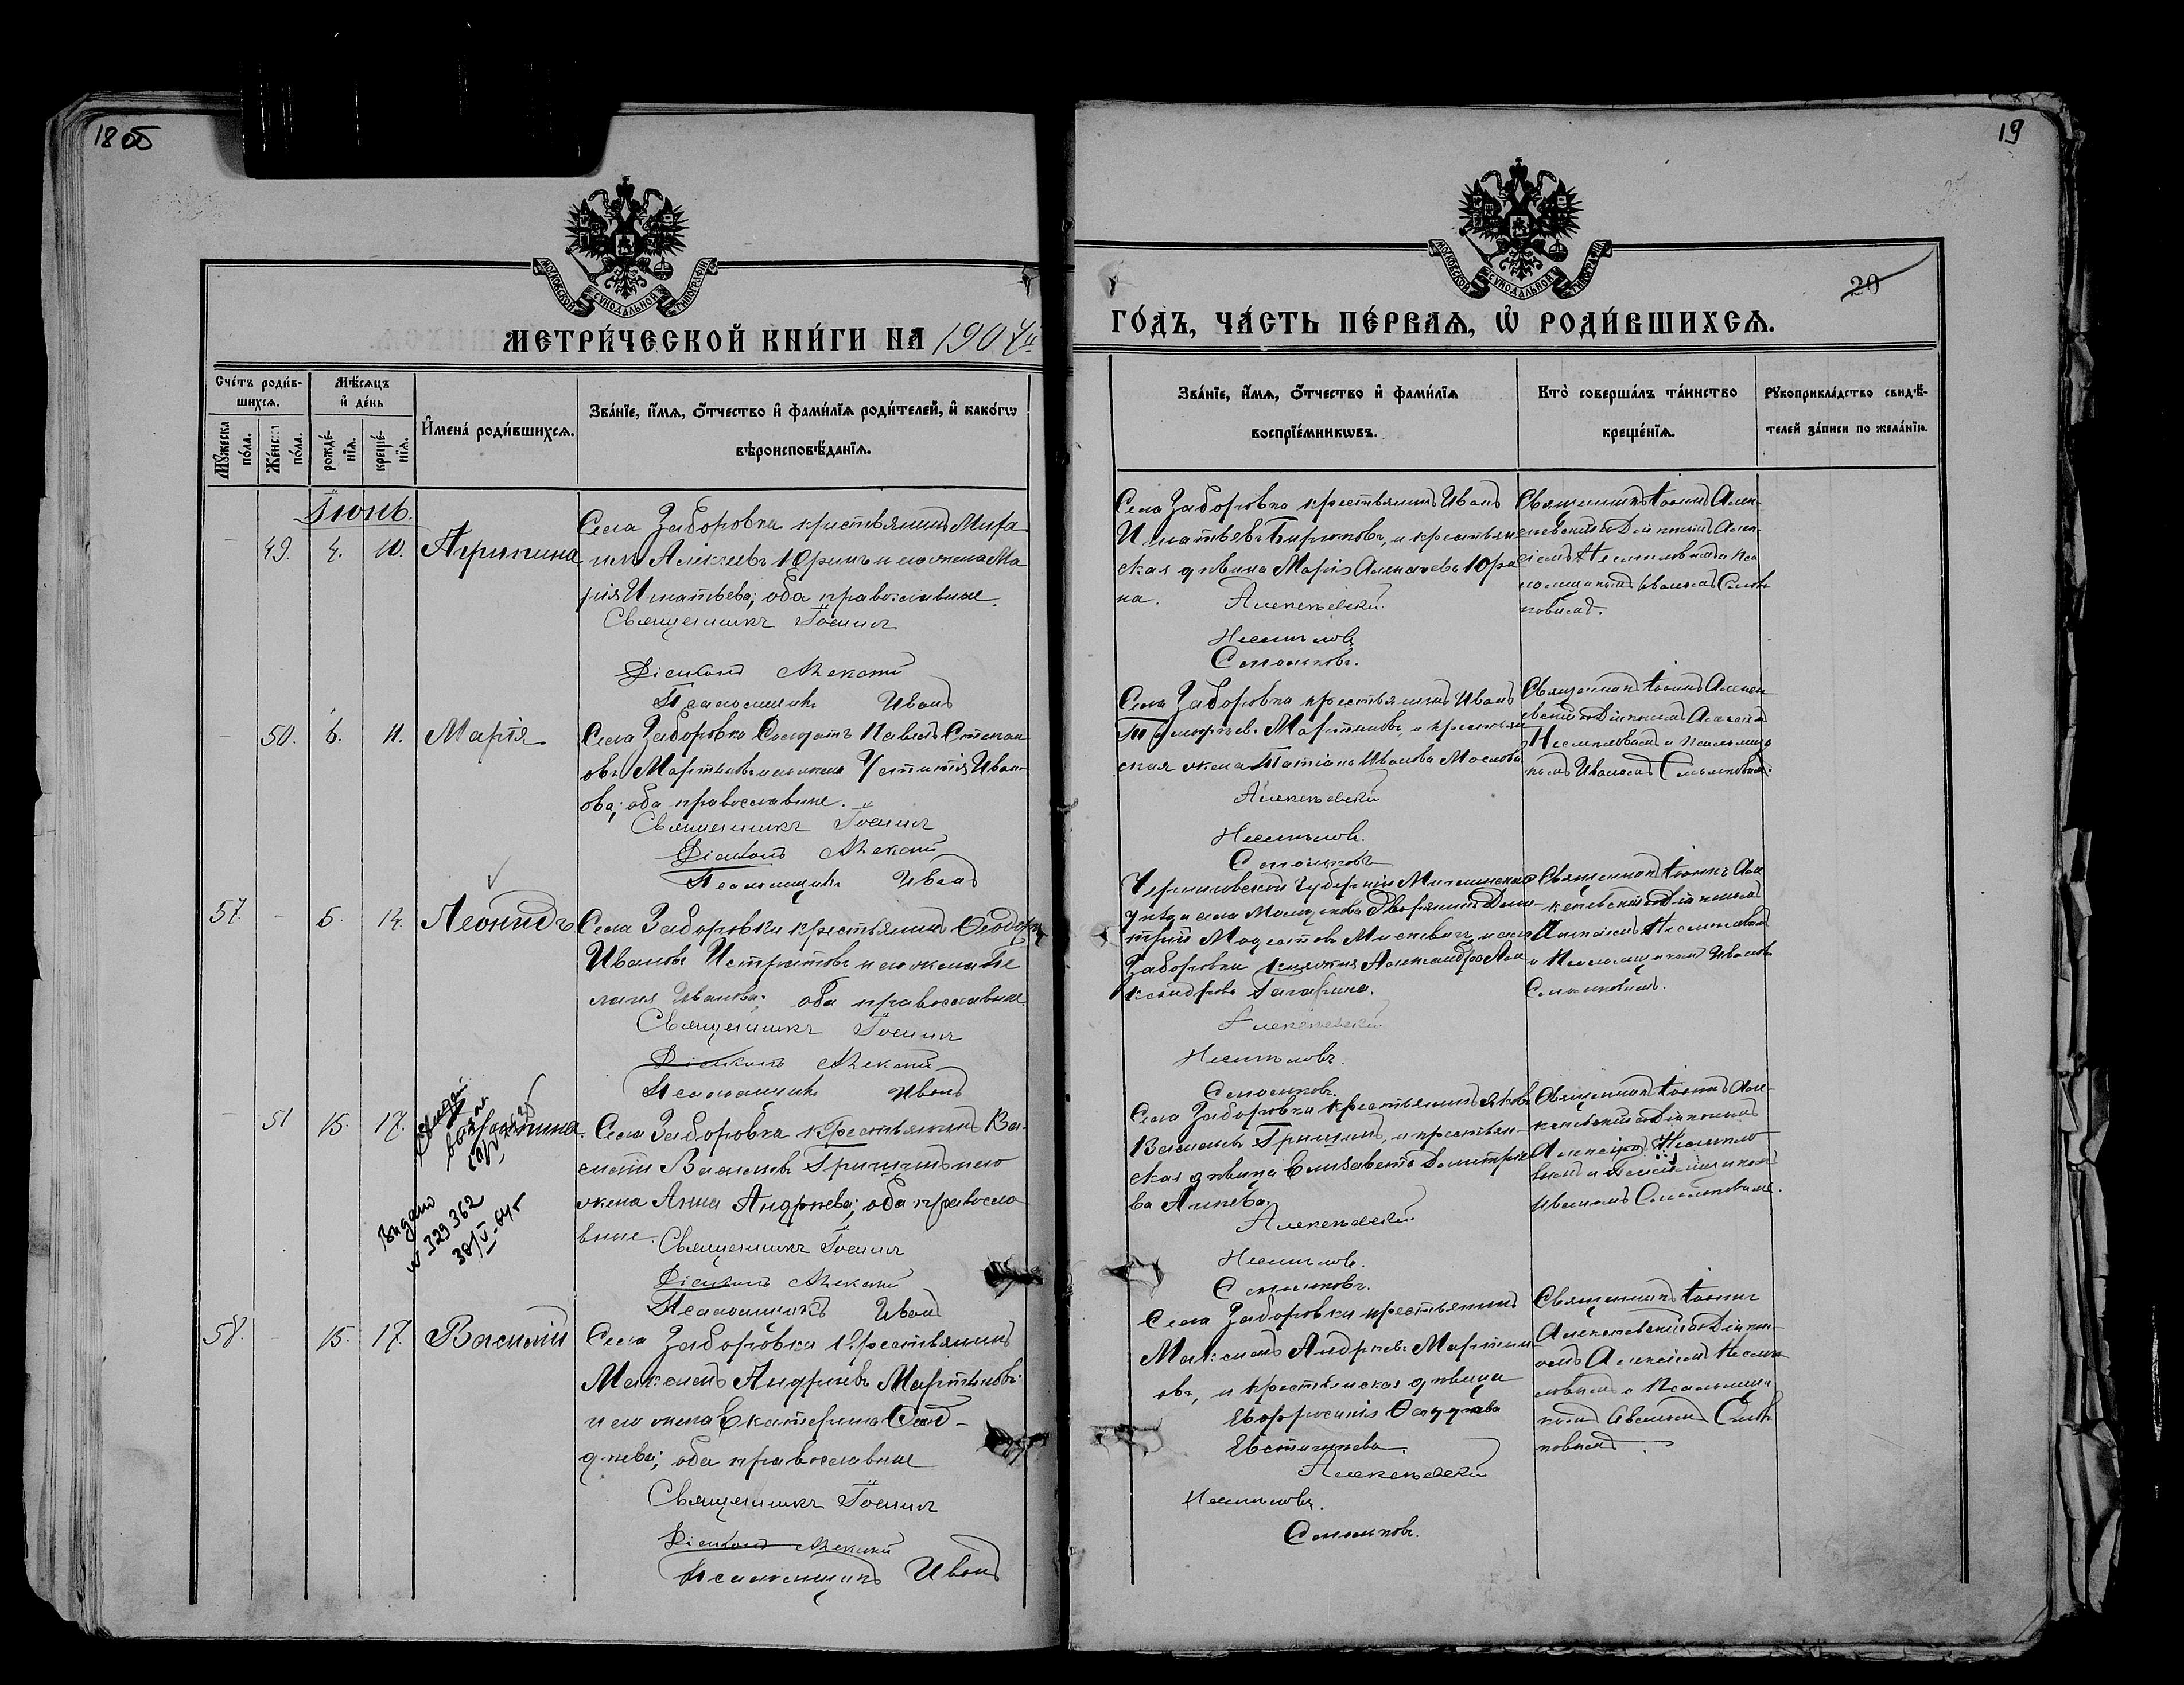 18 об
19
20
МОСКОВСКОЙ СУНОДАЛЬНОЙ ТИПОГРАФІИ
МОСКОВСКОЙ СУНОДАЛЬНОЙ ТИПОГРАФІИ
МЕТРИ́ЧЕСКОЙ КНИ́ГИ НА 1907й
ГО́ДЪ, ЧА́СТЬ ПЕ́РВАѦ, Ѡ҆ РОДИ́ВШИХСѦ.
Сче́тъ роди́в-
шихсѧ.
Мꙋ́жеска по́ла.
Же́нска по́ла.
Мѣ́сѧцъ
и҆ де́нь
рожде́-
нїѧ.
креще́-
нїѧ.
И҆мена̀ роди́вшихсѧ.
Зва́нїе, и҆́мѧ, ѻ҆́тчество и҆ фами́лїѧ роди́телей, и҆ како́гѡ
вѣроисповѣ́данїѧ.
Зва́нїе, и҆́мѧ, ѻ҆́тчество и҆ фами́лїѧ
воспрїе́мникѡвъ.
Кто̀ соверша́лъ та́инство
креще́нїѧ.
Рꙋкоприкла́дство свидѣ́-
телей за́писи по жела́нїю.
Іюнь.
- 49. 4. 10. Агрипина
Села Заборовки крестьянинъ Миха-
илъ Алексеевъ Юринъ и его жена Ма
рія Игнатьева; оба православные.
Священникъ Іоаннъ
Діаконъ Алексій
Псаломщикъ Иванъ
Села Заборовки крестьянинъ Иванъ
Игнатьевъ Бирюковъ, и крестьян
ская дѣвица Марія Алексѣева Юри
на.
Алексѣевскій.
Несмѣловъ
Смольковъ.
Священникъ Іоаннъ Алек-
сѣевскій съ Діакономъ Алек-
сіемъ Несмѣловымъ и Пса
ломщикомъ Иваномъ Смоль
ковымъ.
- 50. 6. 11. Марія
Села Заборовки Солдатъ Павелъ Степан
овъ Мартыновъ и его жена Устинія Иван-
ова; оба православные.
Священникъ Іоаннъ
Діаконъ Алексій
Псаломщикъ Иванъ
Села Заборовки крестьянинъ Иванъ
Мартыновъ, и крестьян
ская жена Татіана Иванова Маслова
Алексѣевскій
Несмѣловъ.
Смольковъ
Священникъ Іоаннъ Алексѣ
евскій съ Діакономъ Алексіемъ
Несмѣловымъ и Псаломщи
комъ Иваномъ Смольковымъ.
57. - 5. 14. Леонидъ
Села Заборовки крестьянинъ Ѳеодоръ
Ивановъ и его жена Пе
лагія Иванова; оба православные.
Священникъ Іоаннъ
Діаконъ Алексій
Псаломщикъ Иванъ
Черниговской Губерніи Мглинскаго
уѣзда села Дворянинъ Дми
трій Модестовъ и села
Заборовки Княжна Александра Але
ксандрова Гагарина.
Алексѣевскій
Несмѣловъ.
Смольковъ.
Священникъ Іоаннъ Але
ксѣевскій съ Діакономъ
Алексіемъ Несмѣловымъ
и Псаломщикомъ Иваномъ
Смольковымъ.
- 51 15. 17.
Выдано
№ 329362
30/V-64г
Села Заборовки крестьянинъ Ва-
силій Васильевъ Гришинъ и его
жена Анна Андреева; оба правосла
вные.
Священникъ Іоаннъ
Діаконъ Алексій
Псаломщикъ Иванъ
Села Заборовки крестьянинъ Яковъ
Васильевъ Гришинъ, и крестьян-
ская дѣвица Елизавета Димитріе
ва
Алексѣевскій.
Несмѣловъ.
Смольковъ.
Священникъ Іоаннъ Але-
ксѣевскій съ Діакономъ
Алексіемъ Несмѣло
вымъ и Псаломщикомъ
Иваномъ Смольковымъ.
58. - 15. 17. Василій
Села Заборовки Крестьянинъ
Максимъ Андреевъ Мартыновъ
и его жена Екатерина
оба православные
Священникъ Іоаннъ
Діаконъ Алексій
Псаломщикъ Иванъ
Села Заборовки крестьянинъ
Максимъ Андреевъ Мартын
овъ, и крестьянская дѣвица
Евфросинія Ѳаддеева
Евстигнеева.
Алексѣевскій
Несмѣловъ.
Смольковъ.
Священникъ Іоаннъ
Алексѣевскій съ Діакон-
омъ Алексіемъ Несмѣ
ловымъ и Псаломщи
комъ Иваномъ Смоль
ковымъ.